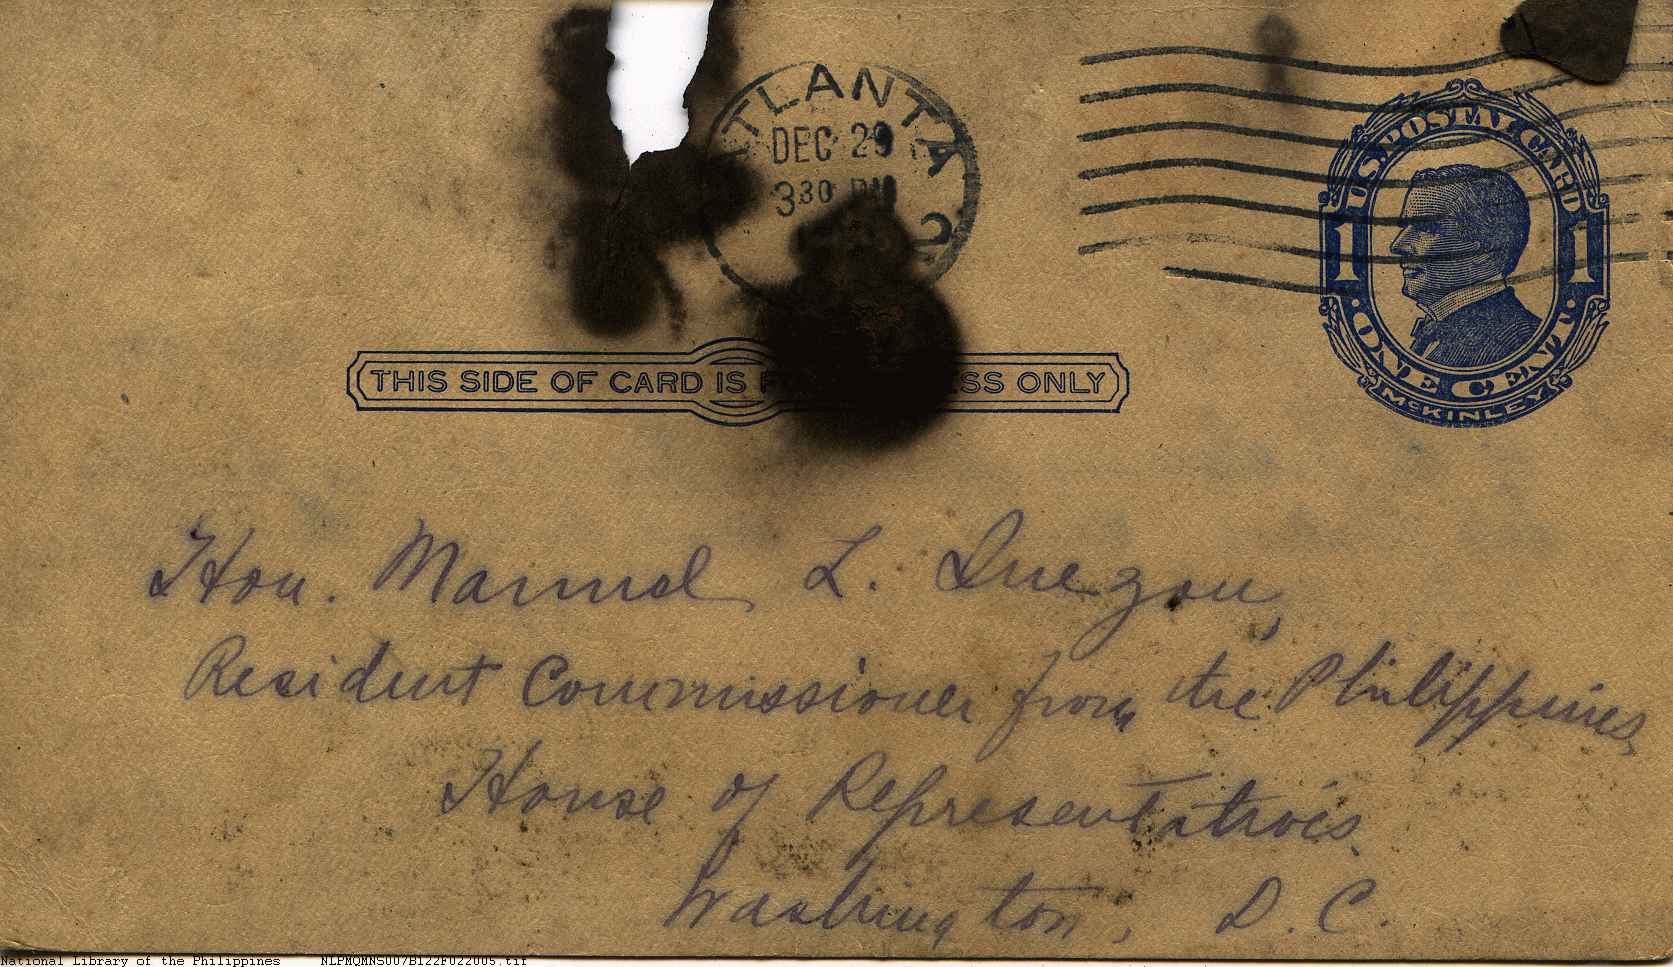 ATLANTA
DEC 29
330 PM
2
U.S. POSTAL CARD
1 1
· ONE CENT ·
McKINLEY
THIS SIDE OF CARD IS F SS ONLY
Hon. Manuel L. Quezon,
Resident Commissioner from the Philippines,
House of Representatives.
Washington, D. C.
National Library of the Philippines NLPMQMNS007B122F022005.tif